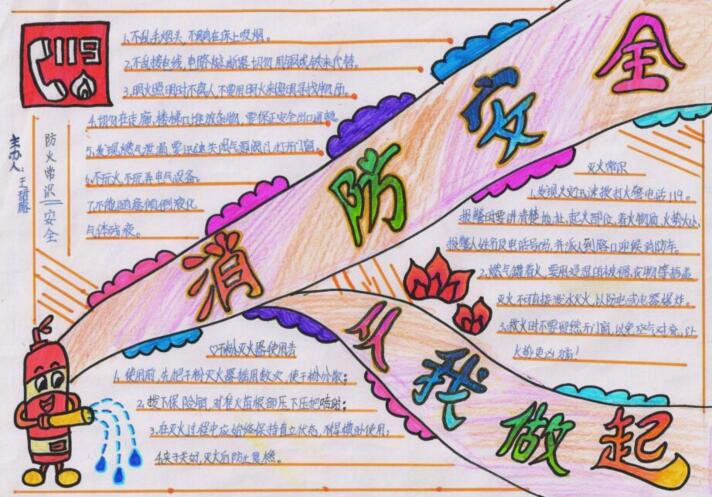 119
消防安全
从我做起
主办人:王
防火常识—安全
1.不乱丢烟头,不躺在床上吸烟。
2.不乱接拉线,电路熔断器切勿用铜或铁丝代替。
3.明火照明时不离人,不要用明火来照明寻找物品。
4.切勿在走廊,楼梯口堆放杂物,要保证安全出口通畅
5.发现燃气泄漏,要迅速关闭气源阀门,打开门窗。
6.不玩火,不玩弄电气设备。
7.不随意倾倒液化
气体残液。
灭火常识
1.发现火灾迅速拨打火警电话119。
报警时要讲清楚地址,起火部位,着火物质,火势大小
报警人姓名及电话号码,并派人到路口迎候消防车。
2.燃气罐着火,要用浸湿的被褥,衣物等捂盖
灭火不可直接泼水灭火,以防电或电器爆炸。
3.救火时不要贸然开门窗,以免空气对流,让
火势更凶猛!
♡干粉灭火器使用法
1.使用前,先把干粉灭火器摇甩数次,使干粉分散;
2.拔下保险销,对着火苗根部压下压把喷射;
3.在灭火过程中应始终保持直立状态,不得横卧使用;
4.灭火后防止复燃。